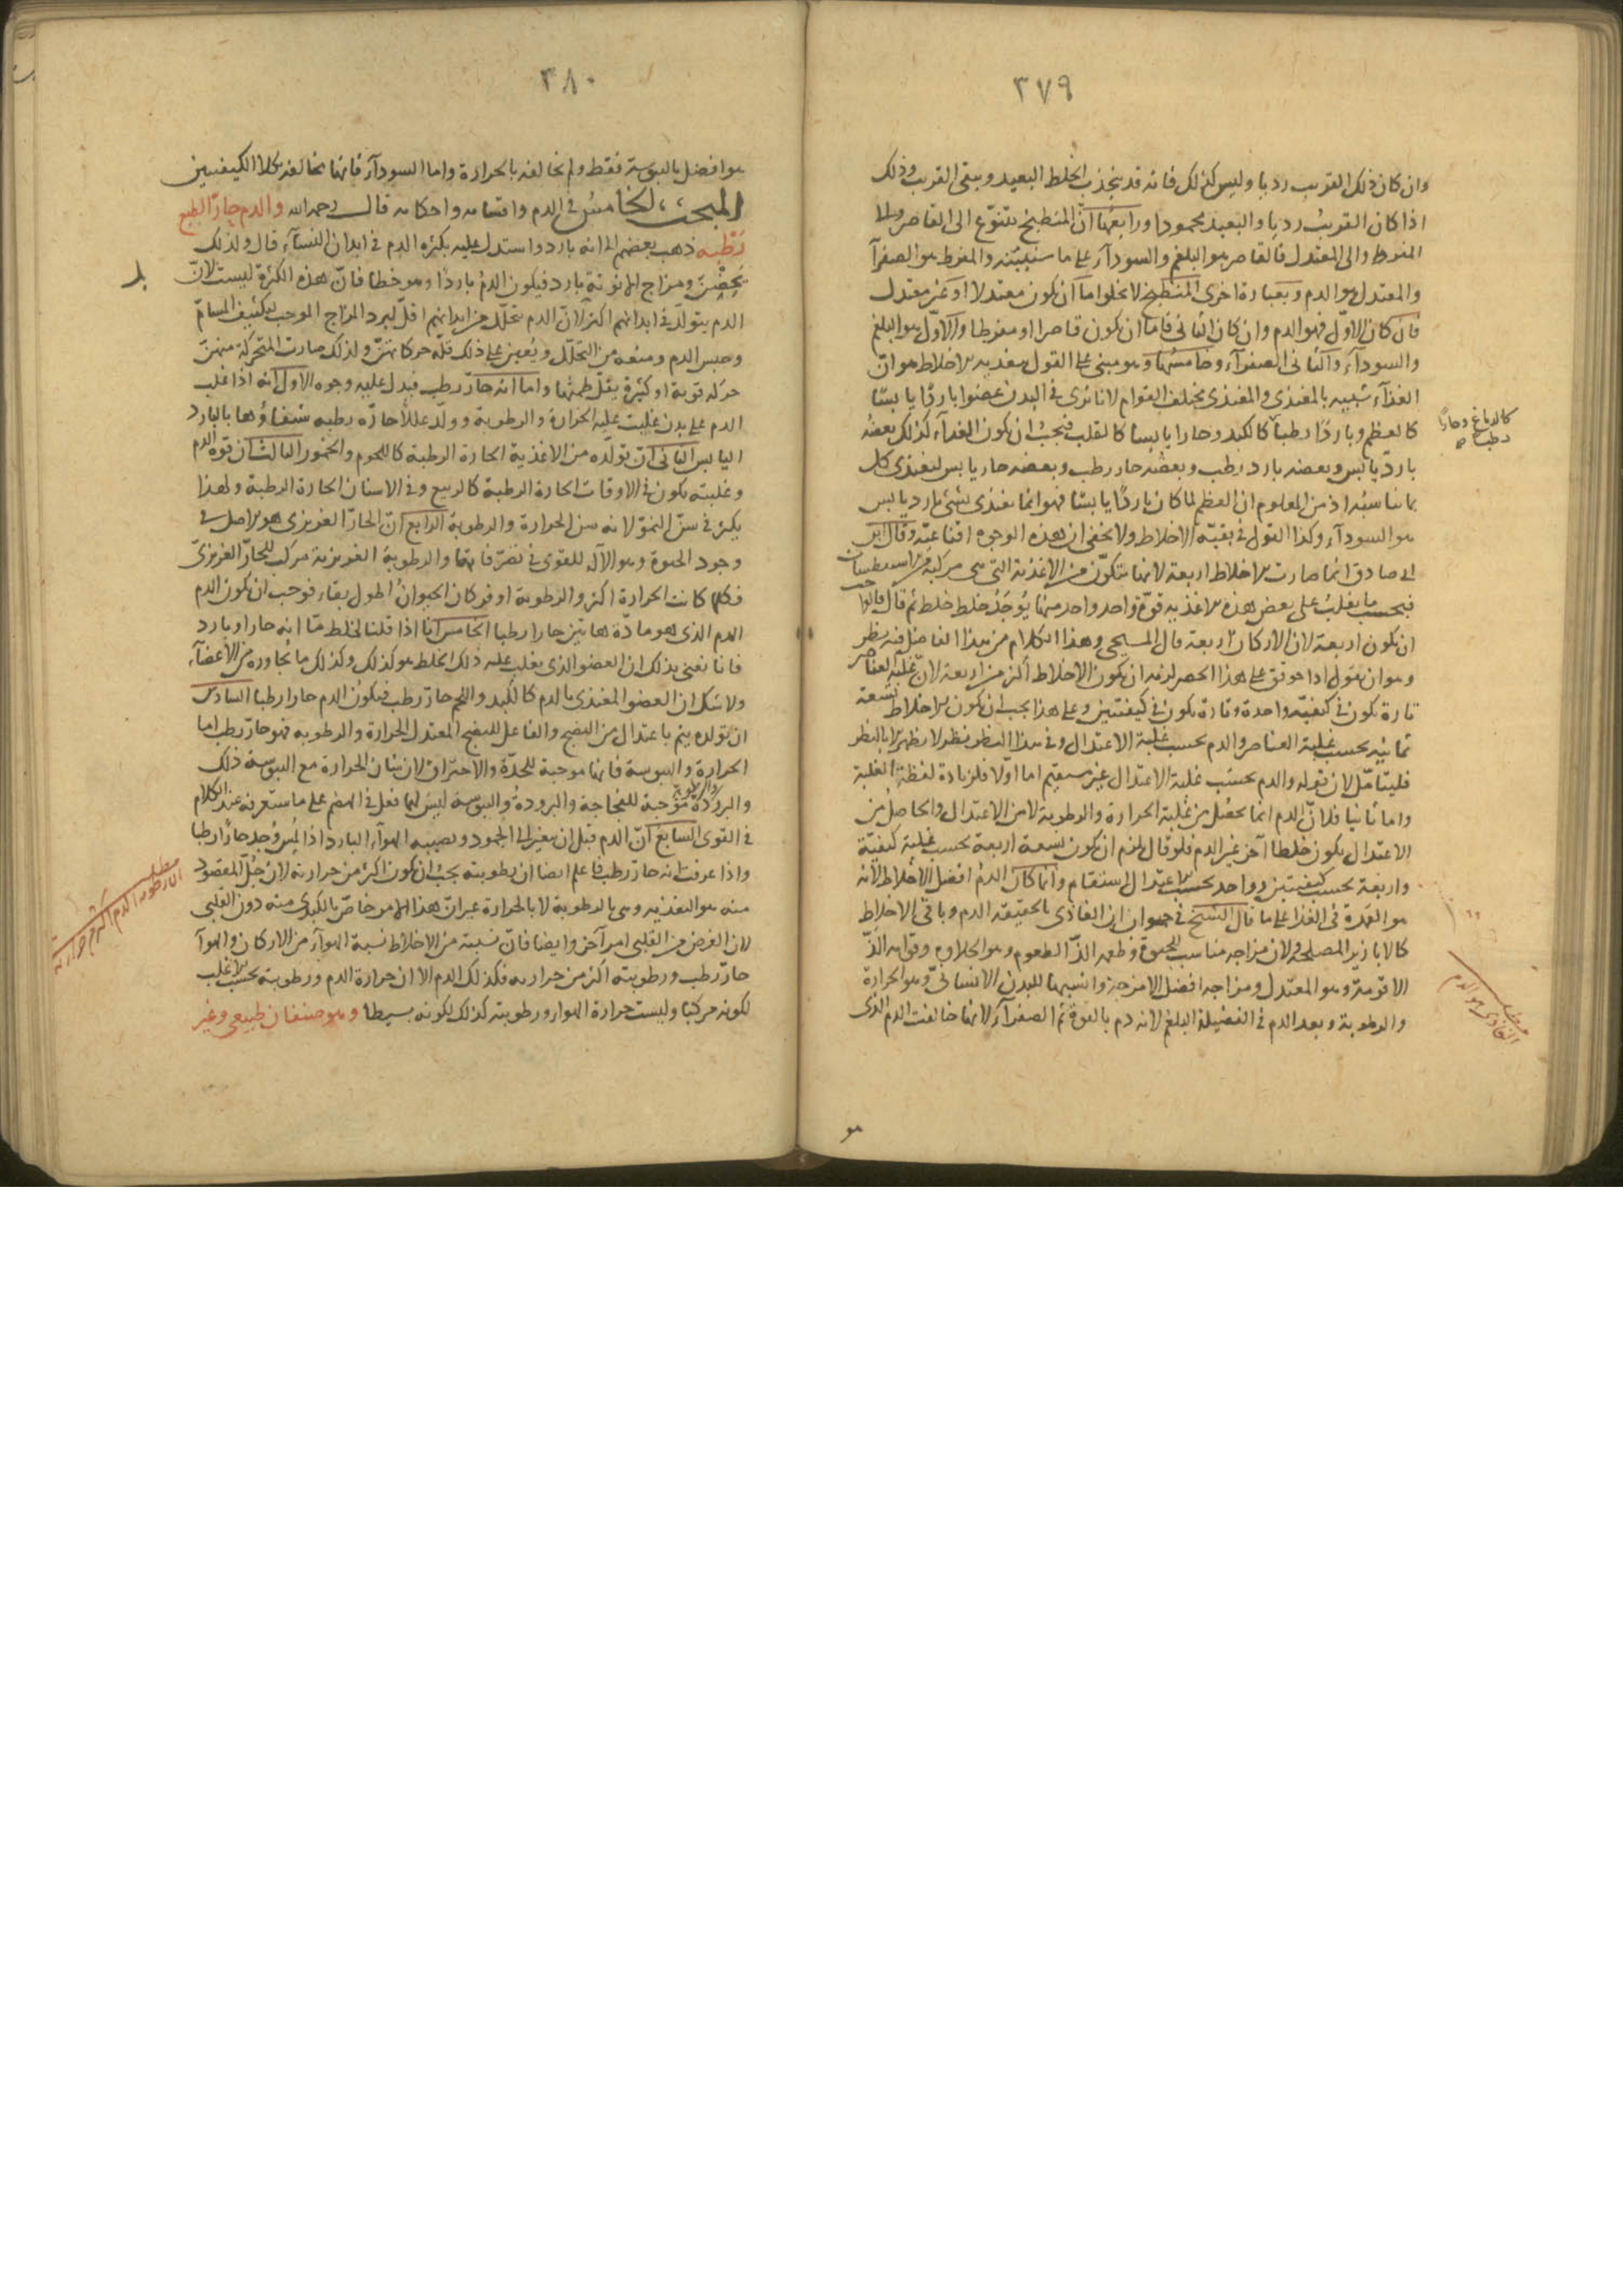 ٣٧٩
وان كان ذلك القريب رديا وليس كذلك فانه قد يجذب الخلط البعيد ويبقى القريب وذلك
اذا كان القريب رديا والبعيد محمودا ورابعها ان المنطبخ يتنوع الى القاصر والى
المفرط والى المعتدل فالقاصر هو البلغم والسودآء على ما سنبينه والمفرط هو الصفرآ
والمعتدل هو الدم وبعبارة اخرى المنطبخ لا يخلوا ما ان يكون معتدلا او غير معتدل
فان كان الاول فهو الدم وان كان الثانى فاما ان يكون قاصرا او مفرطا والاول هو البلغم
والسودآء والثانى الصفرآء وخامسها وهو مبنى على القول بتغذيه الاخلاط هو ان
الغذآء شبيه بالمغتذى والمغتذى مختلف القوام لانا نرى فى البدن عضوا باردا يابسا
كالعظم وباردا رطبا كالكبد وحارا يابسا كالقلب فيجب ان يكون الغذآء كذلك بعضه
كالدماغ وحارا
رطبا صح
بارد يابس وبعضه بارد رطب وبعضه حار رطب وبعضه حار يابس ليغتذى كل
بما يناسبه اذ من المعلوم ان العظم لما كان باردا يابسا فهو انما يغتذى بشئ بارد يابس
هو السودآء وكذا القول فى بقية الاخلاط ولا يخفى ان هذه الوجوه اقناعية وقال ابن
ابى صادق انما صارت الاخلاط اربعة لانها تتكون من الاغذية التى هى مركبة من الاسطقسات
فبحسب ما يغلب على بعض هذه الاغذيه قوة واحد واحد منها يوجد خلط خلط ثم قال قالوا يجب
ان يكون اربعة لان الاركان اربعة قال المسيحى وهذا الكلام من هذا الفاضل فيه نظر
وهو ان نقول اذا حوقق على هذا الحصر لزمه ان يكون الاخلاط اكثر من اربعة لان غلبة العناصر
تارة يكون فى كيفية واحدة وتارة يكون فى كيفيتين وعلى هذا يجب ان يكون الاخلاط تسعة
ثمانيه بحسب غلبة العناصر والدم بحسب غلبة الاعتدال وفى هذا النظر نظر لا يظهر الا بالنظر
فليتامل لان قوله والدم بحسب غلبة الاعتدال غير مستقيم اما اولا فلزيادة لفظة الغلبة
واما ثانيا فلان الدم انما يحصل من غلبة الحرارة والرطوبة لا من الاعتدال والحاصل من
الاعتدال يكون خلطا آخر غير الدم فلو قال يلزم ان يكون تسعة اربعة بحسب غلبة كيفية
واربعة بحسب كيفيتين وواحد بحسب الاعتدال لاستقام وانما كان الدم افضل الاخلاط لانه
هو العمدة فى الغذا على ما قال الشيخ فى حيوان ان الغاذى بالحقيقة الدم وباقى الاخلاط
كالابازير المصلحة ولان مزاجه مناسب للحيوة وطعمه الذ الطعوم وهو الحلاوة وقوامه الذ
الاقومة وهو المعتدل ومزاجه افضل الامزجة وانسبها للبدن الانسانى وهو الحرارة
والرطوبة وبعد الدم فى الفضيلة البلغم لانه دم بالقوة ثم الصفرآء لانها خالفت الدم الذى
مطلب
الغاذى هو الدم
هو
٣٨٠
هو افضل باليبوسة فقط ولم تخالفه بالحرارة واما السودآء فانها تخالفه بكلا الكيفيتين
المبحث الخامس فى الدم واقسامه واحكامه قال رحمه الله والدم حار الطبع
رطبه ذهب بعضهم الى انه بارد واستدل عليه بكثرة الدم فى ابدان النسآء قال ولذلك
يحضن ومزاج الانوثة بارد فيكون الدم باردا وهو خطا فان هذه الكثرة ليست لان
الدم يتولد فى ابدانهم اكثر لان الدم يتحلل من ابدانهم اقل لبرد المزاج الموجب لتكثيف المسام
وحبس الدم ومنعه من التحلل ويعين على ذلك قلة حركاتهن ولذلك صارت المتحركة منهن
حركة قوية او كثيرة يقل طمثها واما انه حار رطب فيدل عليه وجوه الاول انه اذا غلب
الدم على بدن غلبت عليه الحرارة والرطوبة وولد عللا حارة رطبه شفاؤها بالبارد
اليابس الثانى ان تولده من الاغذية الحارة الرطبة كاللحوم والخمور الثالث ان قوة الدم
وغلبته يكون فى الاوقات الحارة الرطبة كالربيع وفى الاسنان الحارة الرطبة ولهذا
يكثر فى سن النمو لانه سن الحرارة والرطوبة الرابع ان الحار الغريزى هو الاصل فى
وجود الحيوة وهو الآلة للقوى فى تصرفاتها والرطوبة الغريزية مركب للحار الغريزى
فكلما كانت الحرارة اكثر والرطوبة اوفر كان الحيوان اطول بقاء فوجب ان يكون الدم
الدم الذى هو مادة هاتين حارا رطبا الخامس انا اذا قلنا لخلط ما انه حار او بارد
فانا نعنى بذلك ان العضو الذى يغلب عليه ذلك الخلط هو كذلك وكذلك ما يجاوره من الاعضآء
ولا شك ان العضو المغتذى بالدم كالكبد واللحم حار رطب فيكون الدم حارا رطبا السادس
ان تولده يتم باعتدال من النضج والفاعل للنضج المعتدل الحرارة والرطوبة فهو حار رطب اما
الحرارة واليبوسة فانها موجبة للحدة والاحتراق لان شان الحرارة مع اليبوسة ذلك
والبرودة والرطوبة موجبة للفجاجة والبرودة واليبوسة ليس لهما فعل فى الهضم على ما ستعرفه عند الكلام
فى القوى السابع ان الدم قبل ان يتغير الى الجمود ويصيبه الهوآء البارد اذا لمس وجد حارا رطبا
واذا عرفت انه حار رطب فاعلم ايضا ان رطوبته يجب ان يكون اكثر من حرارته لان جل المقصود
منه هو التغذيه وهى بالرطوبة لا بالحرارة غير ان هذا الامر خاص بالكبدى منه دون القلبى
لان الغرض من القلبى امر آخر وايضا فان نسبته من الاخلاط نسبة الهوآء من الاركان والهوآ
حار رطب ورطوبته اكثر من حرارته فكذلك الدم الا ان حرارة الدم ورطوبته بحسب الاغلب
لكونه مركبا وليست حرارة الهوا ورطوبته كذلك لكونه بسيطا وهو صنفان طبيعى وغير
مطلب
ان رطوبة الدم اكثر من حرارته